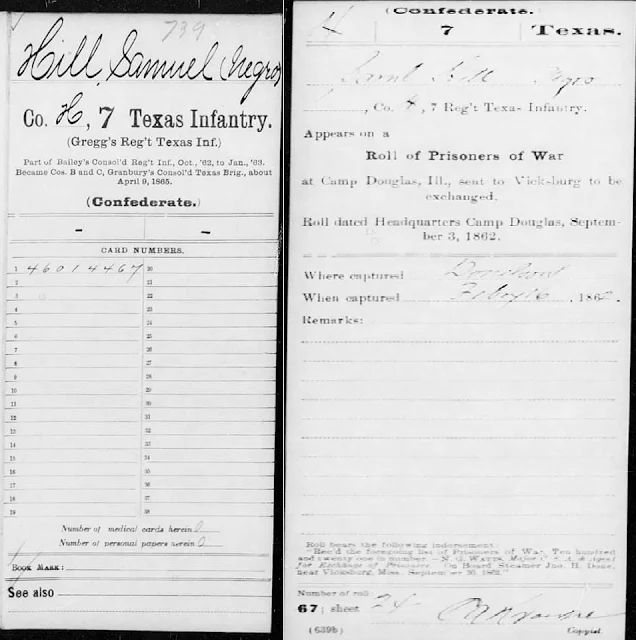 739
Hill, Samuel (Negro)
Co. H, 7 Texas Infantry.
(Gregg's Reg't Texas Inf.)
Part of Bailey's Consol'd Reg't Inf., Oct., '62, to Jan., '63.
Became Cos. B and C, Granbury's Consol'd Texas Brig., about
April 9, 1865.
(Confederate.)
CARD NUMBERS.
1 46014467 20
2 21
3 22
4 23
5 24
6 25
7 26
8 27
9 28
10 29
11 30
12 31
13 32
14 33
15 34
16 35
17 36
18 37
19 38
Number of medical cards herein 0
Number of personal papers herein 0
BOOK MARK:
See also
(Confederate.)
H 7 Texas.
Saml Hill Negro
, Co. H, 7 Reg't Texas Infantry.
Appears on a
Roll of Prisoners of War
at Camp Douglas, Ill., sent to Vicksburg to be
exchanged.
Roll dated Headquarters Camp Douglas, Septem-
ber 3, 1862.
Where captured Donelson
When captured Feby 16, 1862.
Remarks:
Roll bears the following indorsement:
"Rec'd the foregoing list of Prisoners of War, Ten hundred
and twenty one in number — N. G. WATTS, Major C. S. A. & Agent
for Exchange of Prisoners. On Board Steamer Jno. H. Done,
near Vicksburg, Miss. September 20, 1862."
Number of roll:
67; sheet 24
(639b) Copyist.